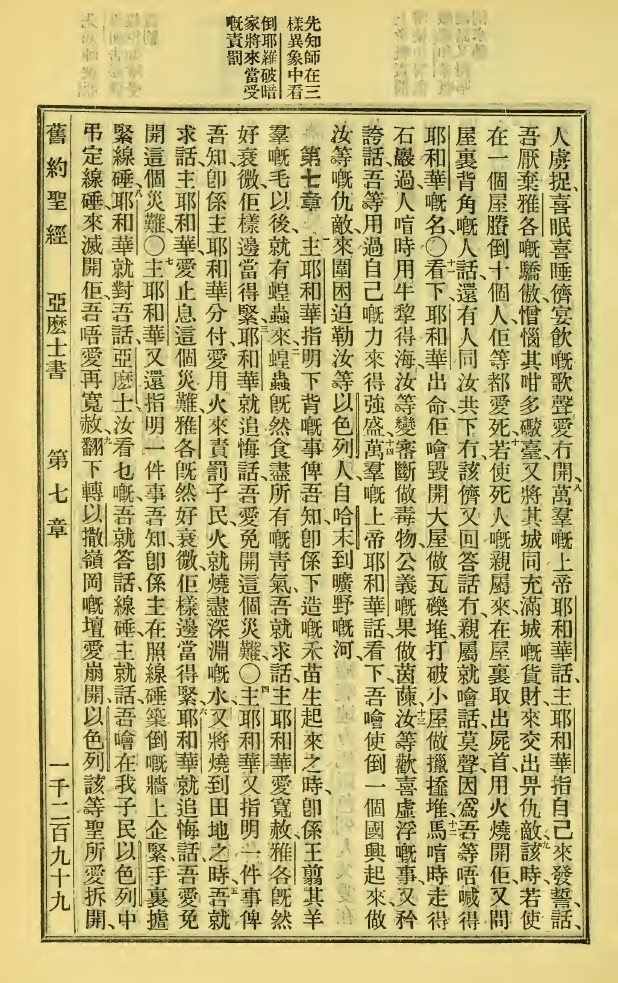 先知師在三
樣異象中看
倒耶羅破暗
家將來當受
嘅責罰
人虜捉、喜眠喜睡儕宴飲嘅歌聲愛冇開、八萬羣嘅上帝耶和華話、主耶和華指自己來發誓話、
吾厭棄雅各嘅驕傲、憎惱其咁多礮臺、又將其城同充滿城嘅貨財來交出畀仇敵、九該時若使
在一個屋賸倒十個人、佢等都愛死、十若使死人嘅親屬來在屋裏取出屍首、用火燒開佢、又問
屋裏背角嘅人話、還有人同汝共下冇、該儕又回答話冇、親屬就噲話、莫聲、因爲吾等唔喊得
耶和華嘅名〇十一看下耶和華出命、佢噲毀開大屋做瓦礫堆、打破小屋做擸𢶍堆、十二馬啃時走得
石巖過、人啃時用牛犂得海、汝等變審斷做毒物、公義嘅果做茵蔯、十三汝等歡喜虛浮嘅事、又矜
誇話、吾等用過自己嘅力來得強盛、十四萬羣嘅上帝耶和華話、看下、吾噲使倒一個國興起來做
汝等嘅仇敵、來圍困迫勒汝等以色列人、自哈末到曠野嘅河、
第七章 一主耶和華指明下背嘅事俾吾知、卽係下造嘅禾苗生起來之時、卽係王翦其羊
羣嘅毛以後、就有蝗蟲來、二蝗蟲旣然食盡所有嘅靑氣、吾就求話、主耶和華愛寬赦、雅各旣然
好衰微、佢樣邊當得緊、三耶和華就追悔話、吾愛免開這個災難〇四主耶和華又指明一件事俾
吾知、卽係主耶和華分付愛用火來責罰子民、火就燒盡深淵嘅水、又將燒到田地之時、五吾就
求話、主耶和華、愛止息這個災難、雅各旣然好衰微、佢樣邊當得緊、六耶和華就追悔話、吾愛免
開這個災難〇七主耶和華又還指明一件事吾知、卽係主在照線硾築倒嘅牆上企緊、手裏攎
緊線硾、八耶和華就對吾話、亞麽士、汝看乜嘅、吾就答話、線硾、主就話、吾噲在我子民以色列中
弔定線硾、來滅開佢、吾唔愛再寬赦、九翻下轉以撒嶺岡嘅壇愛崩開、以色列該等聖所愛拆開、
舊約聖經 亞麽士書 第七章 一千二百九十九